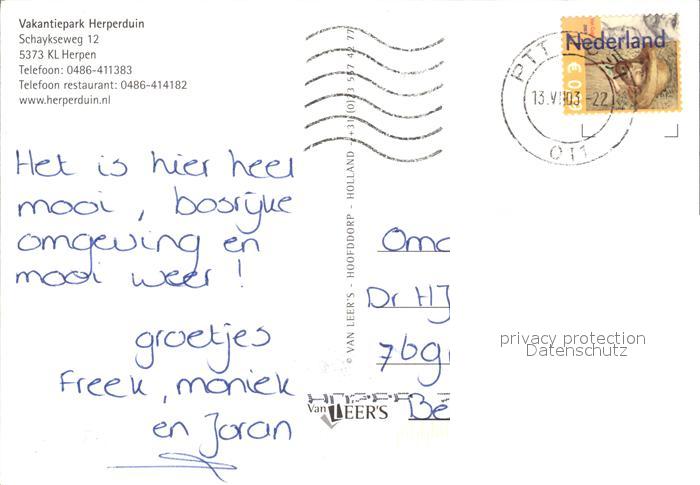 Vakantiepark Herperduin
Schaykseweg 12
5373 KL Herpen
Telefoon: 0486-411383
Telefoon restaurant: 0486-414182
www.herperduin.nl
Het is hier heel
mooi, bosrijke
omgeving en
mooi weer!
groetjes
Freek, moniek
en Joran
© VAN LEER'S - HOOFDDORP - HOLLAND - +31 (0)23 557 42 77
Van LEER'S
Nederland
PTT POST
13.VII03-22
011
Dr HJ
privacy protection
Datenschutz